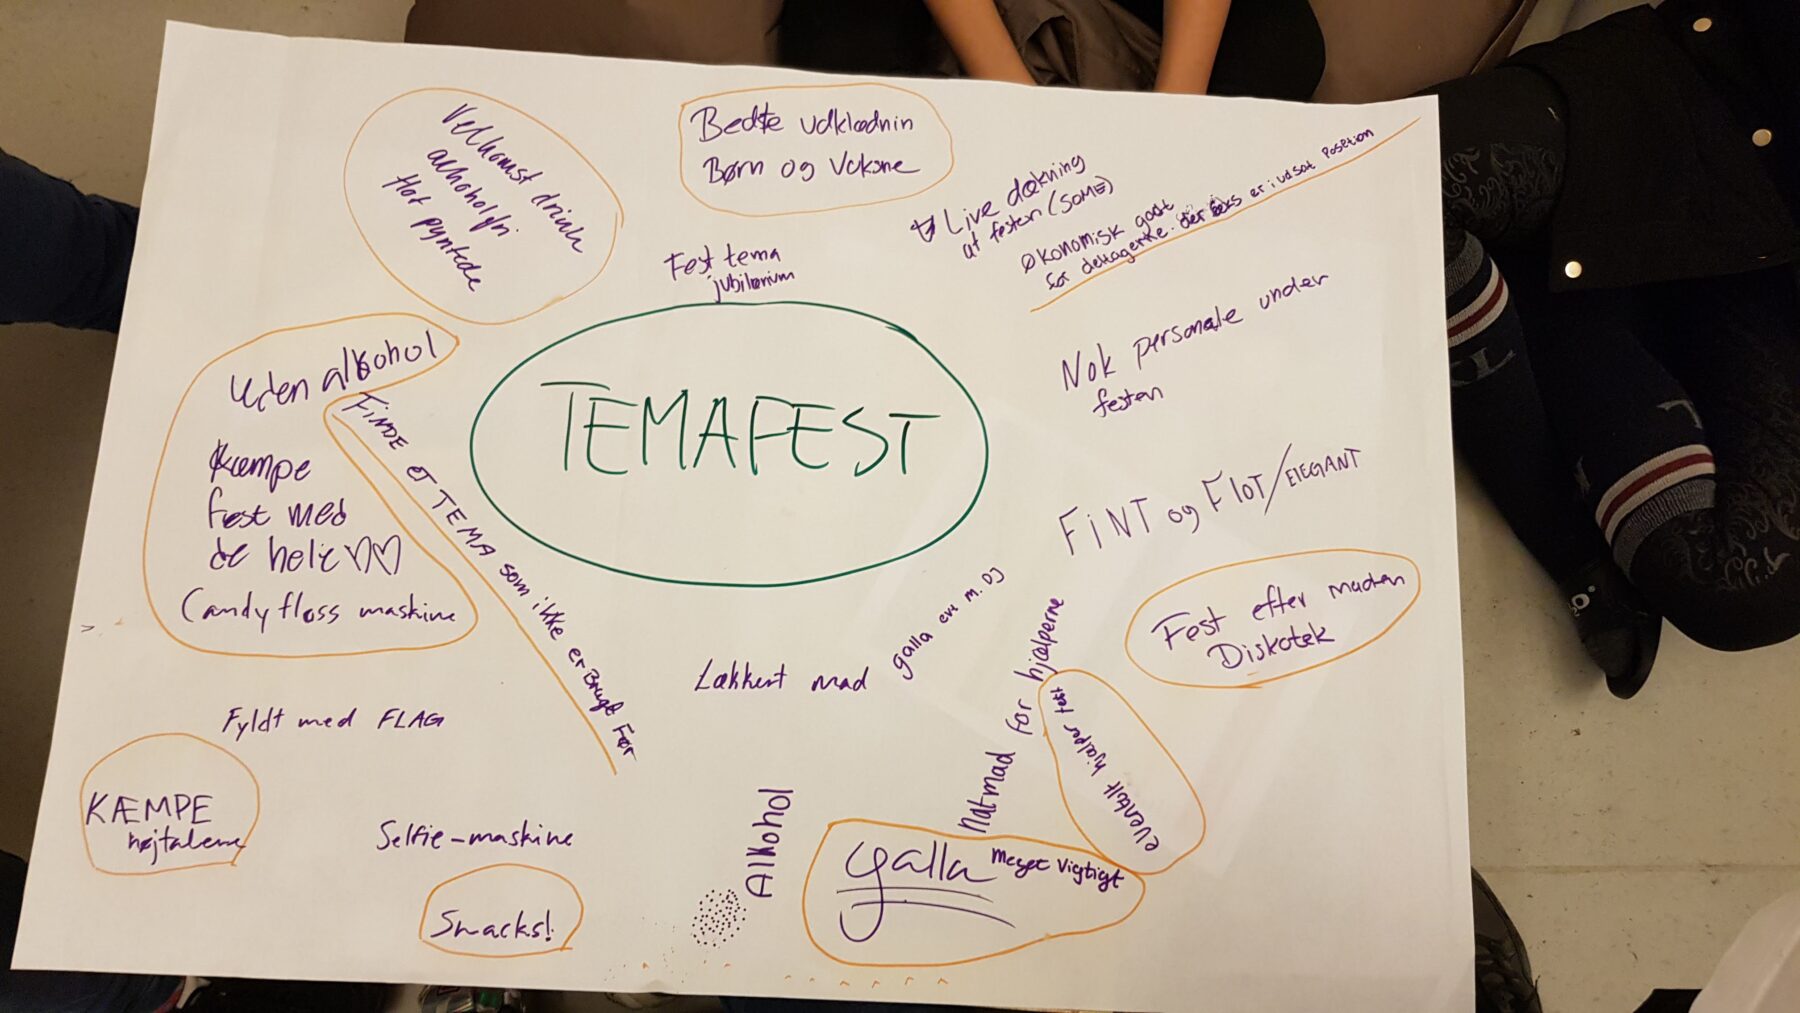 Velkomst drink
alchoholfri
Flot pyntede
Bedste udklædnin
Børn og Voksne
Live dækning
af festen (SOME)
Økonomisk godt
for deltagerne. der er i udsat posetion
Fest tema
jubilærium
TEMAFEST
Nok personale under
festen
Uden alkohol
Kæmpe
fest med
de hele
Candyfloss maskine
FINDE ET TEMA som ikke er Brugt Før
FINT og FLOT/ELEGANT
Fest efter maden
Diskotek
Lækkert mad
galla evt m. og
Natmad for hjælperne
eventuelt hjælper fest
Fyldt med FLAG
KÆMPE
højtalerne
Selfie-maskine
Snacks!
Alkohol
galla meget vigtigt